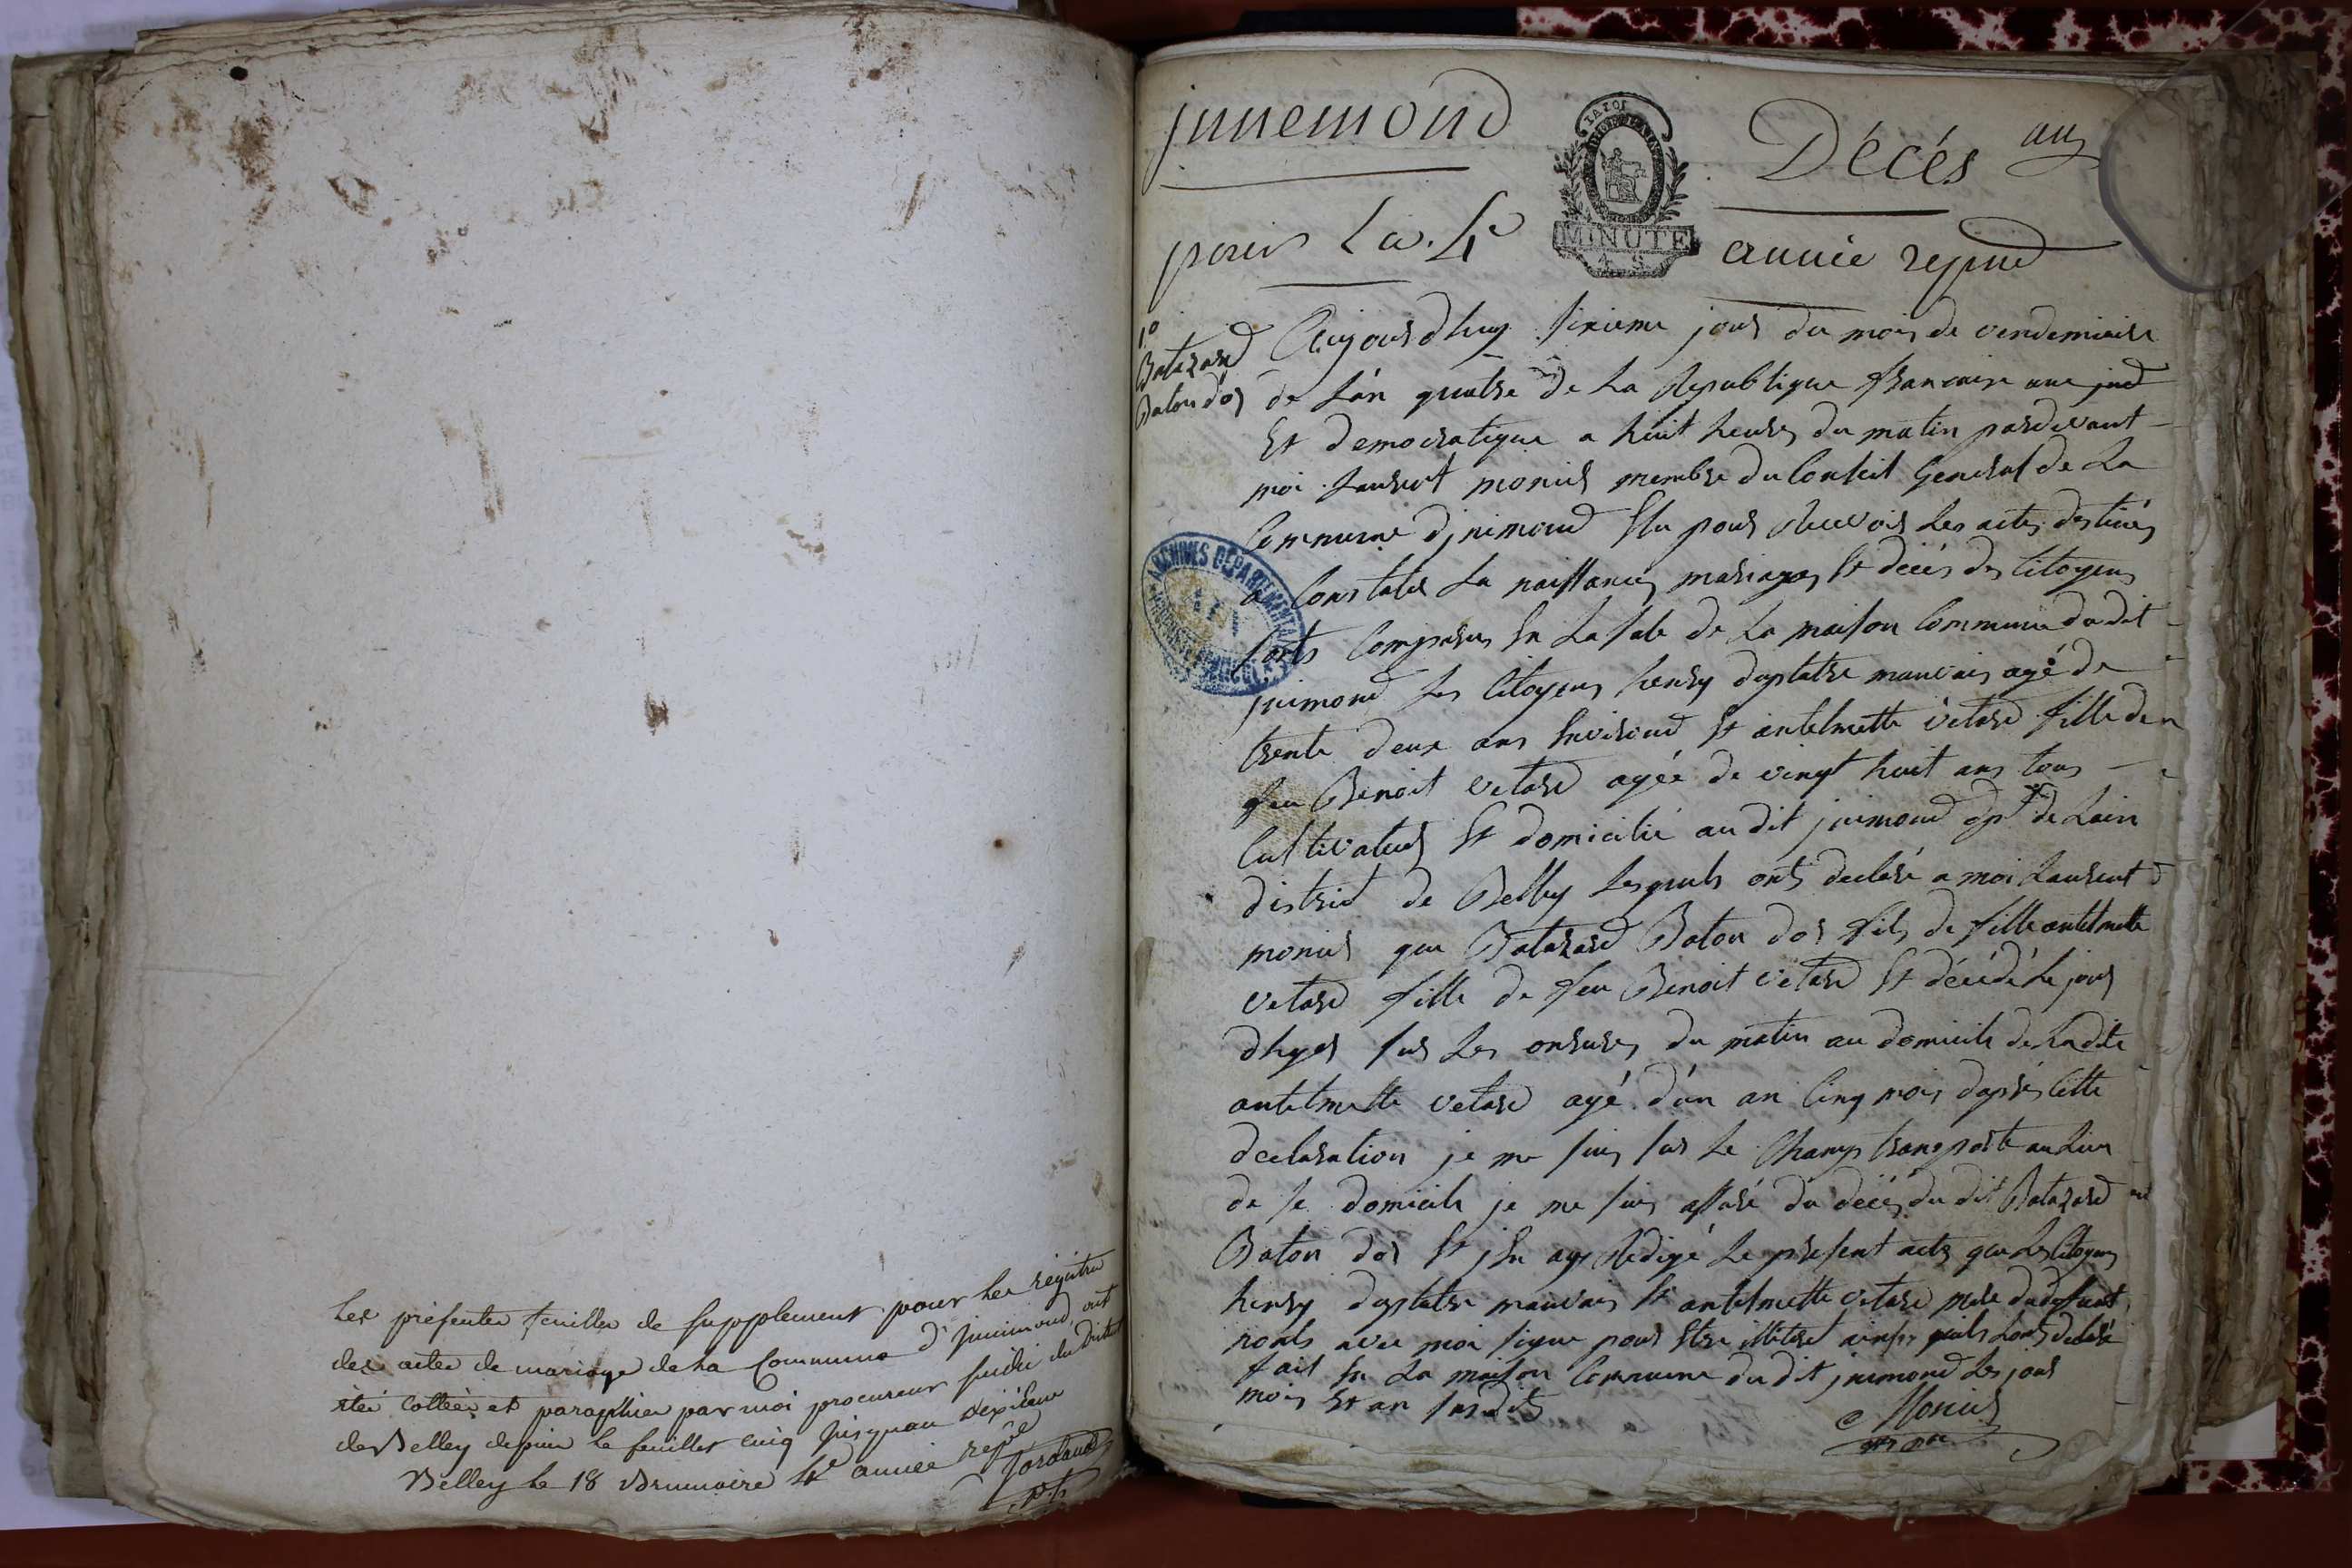 Les présentes feuilles de supplement pour les registres
des actes de mariage de la Commune d'Innimond, ont
été cottées et paraphées par moi procureur sindic du District
de Belley depuis le feuillet cinq jusquau sixième
Belley le 18 Brumaire 4e année répe
innemond
Décés
pour La 4e
année
MINUTE
1º
Batazard
Baton dor
Aujourdhuy sixieme jour du mois de vendemiaire
de l'an quatre de La Republique francaise une ind
et democratique a huit heures du matin pardevant
moi Laurent monier membre du Conseil General de La
Commune d'jnimond elu pour Recevoir Les actes destinés
a Constater La naissances mariages et décés des Citoyens
sonts Comparus en La sale de La maison Commune dudit
jnimond Les Citoyens henry duplatre mauvais agé de
trente deux ans environd et antelmette vetard fille de
feu Benoit vetard agée de vingt huit ans tous
Cultivateur et domicilié au dit jnimond dpt de Lain
district de Belley Lesquels onts declaré a moi Laurent
monier que Batazard Baton dor fils de fille antelmette
vetard fille de feu Benoit vetard et décédé Le jour
dhyer sur Les du matin au domicile de Ladite
antelmette vetard agé d'un an Cinq mois daprés Cette
declaration je me suis sur Le Champ transporté au Lieu
de se domicile je me suis assuré du décés du dit Batazard
Baton dor et jen ay Redigé Le present acte que Les Citoyens
henry duplatre mauvais et antelmette vetard mere du defunt
nonts avec moi signe pour etre illitré ainsy quils Lonts declaré
fait en La maison Commune du dit jnimond Les jour
mois et an susdits
Monier